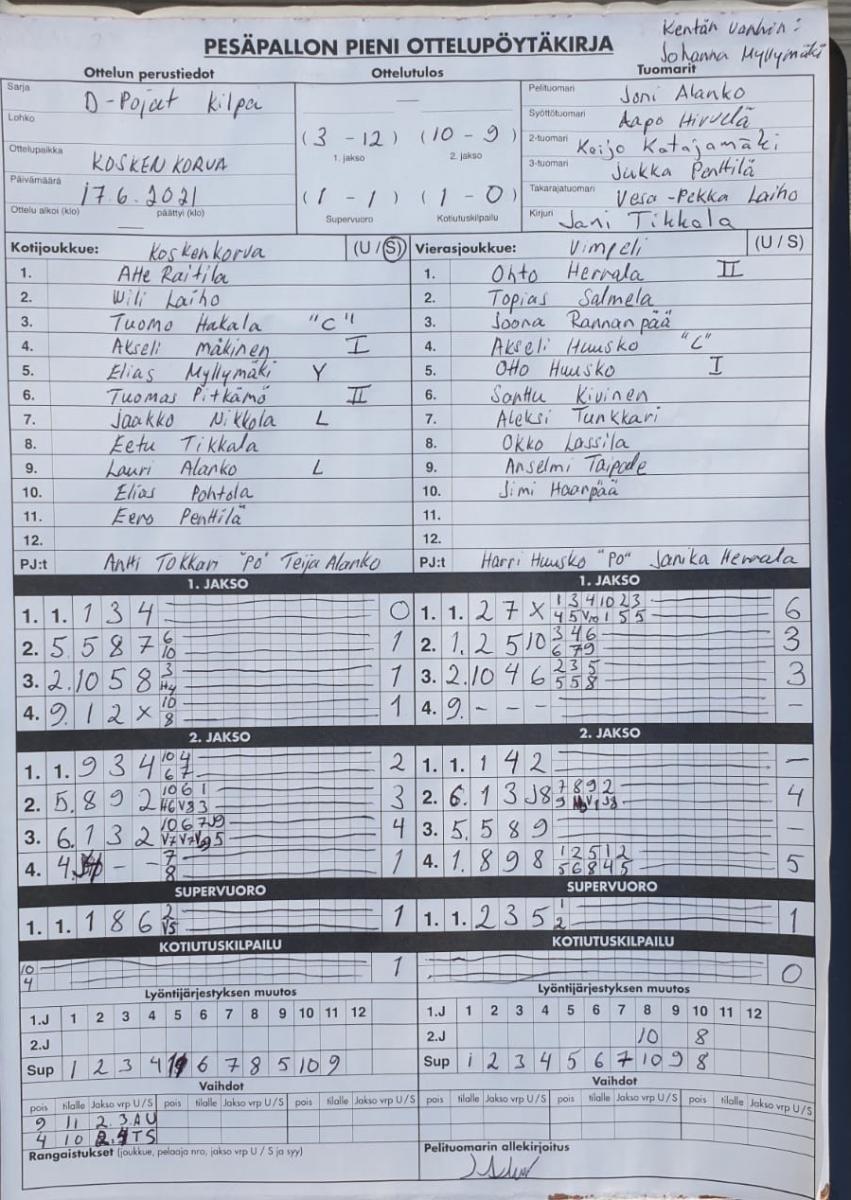 Kentän vanhin:
Johanna Myllymäki
PESÄPALLON PIENI OTTELUPÖYTÄKIRJA
Ottelun perustiedot
Ottelutulos
Tuomarit
Sarja D-Pojat Kilpa
Lohko
Ottelupaikka KOSKENKORVA
Päivämäärä 17.6.2021
Ottelu alkoi (klo) päättyi (klo)
(3 - 12) (10 - 9)
1. jakso 2. jakso
(1 - 1) (1 - 0)
Supervuoro Kotiutuskilpailu
Pelituomari Joni Alanko
Syöttötuomari Aapo Hirvelä
2-tuomari Keijo Katajamäki
3-tuomari Jukka Penttilä
Takarajatuomari Vesa-Pekka Laiho
Kirjuri Jani Tikkala
Kotijoukkue: Koskenkorva (U / S)
1. Atte Raitila
2. Wili Laiho
3. Tuomo Hakala "C"
4. Akseli Mäkinen I
5. Elias Myllymäki Y
6. Tuomas Pitkämö II
7. Jaakko Nikkola L
8. Eetu Tikkala
9. Lauri Alanko L
10. Elias Pohtola
11. Eero Penttilä
12.
PJ:t Antti Tokkari "PO" Teija Alanko
Vierasjoukkue: Vimpeli (U / S)
1. Ohto Herrala II
2. Topias Salmela
3. Joona Rannanpää
4. Akseli Huusko "C"
5. Otto Huusko I
6. Santtu Kivinen
7. Aleksi Tunkkari
8. Okko Lassila
9. Anselmi Taipale
10. Jimi Haanpää
11.
12.
PJ:t Harri Huusko "PO" Janika Herrala
1. JAKSO
1. 1. 1 3 4 0
2. 5. 5 8 7 6 10 1
3. 2. 10 5 8 3 H4 1
4. 9. 1 2 x 10 8 1
2. JAKSO
1. 1. 9 3 4 10 4 6 7 2
2. 5. 8 9 2 10 6 1 H6 V3 3 3
3. 6. 1 3 2 10 6 7 J9 V7 V7 5 4
4. 4. - - 7 8 1
SUPERVUORO
1. 1. 1 8 6 2 V5 1
KOTIUTUSKILPAILU
10
4 1
1. JAKSO
1. 1. 2 7 x 1 3 4 10 2 3 4 5 V10 1 5 5 6
2. 1. 2 5 10 3 4 6 6 7 9 3
3. 2. 10 4 6 2 3 5 5 5 8 3
4. 9. - - - -
2. JAKSO
1. 1. 1 4 2 -
2. 6. 1 3 J8 7 8 9 2 9 V1 J8 4
3. 5. 5 8 9 -
4. 1. 8 9 8 1 2 5 1 2 5 6 8 4 5 5
SUPERVUORO
1. 1. 2 3 5 1 2 1
KOTIUTUSKILPAILU
0
Lyöntijärjestyksen muutos
1.J 1 2 3 4 5 6 7 8 9 10 11 12
2.J
Sup 1 2 3 4 6 7 8 5 10 9
Vaihdot
pois tilalle Jakso vrp U / S pois tilalle Jakso vrp U / S pois tilalle Jakso vrp U / S
9 11 2. 3. A U
4 10 2. T S
Rangaistukset (joukkue, pelaaja nro, jakso vrp U / S ja syy)
Lyöntijärjestyksen muutos
1.J 1 2 3 4 5 6 7 8 9 10 11 12
2.J 10 8
Sup 1 2 3 4 5 6 7 10 9 8
Vaihdot
pois tilalle Jakso vrp U / S pois tilalle Jakso vrp U / S pois tilalle Jakso vrp U / S
Pelituomarin allekirjoitus